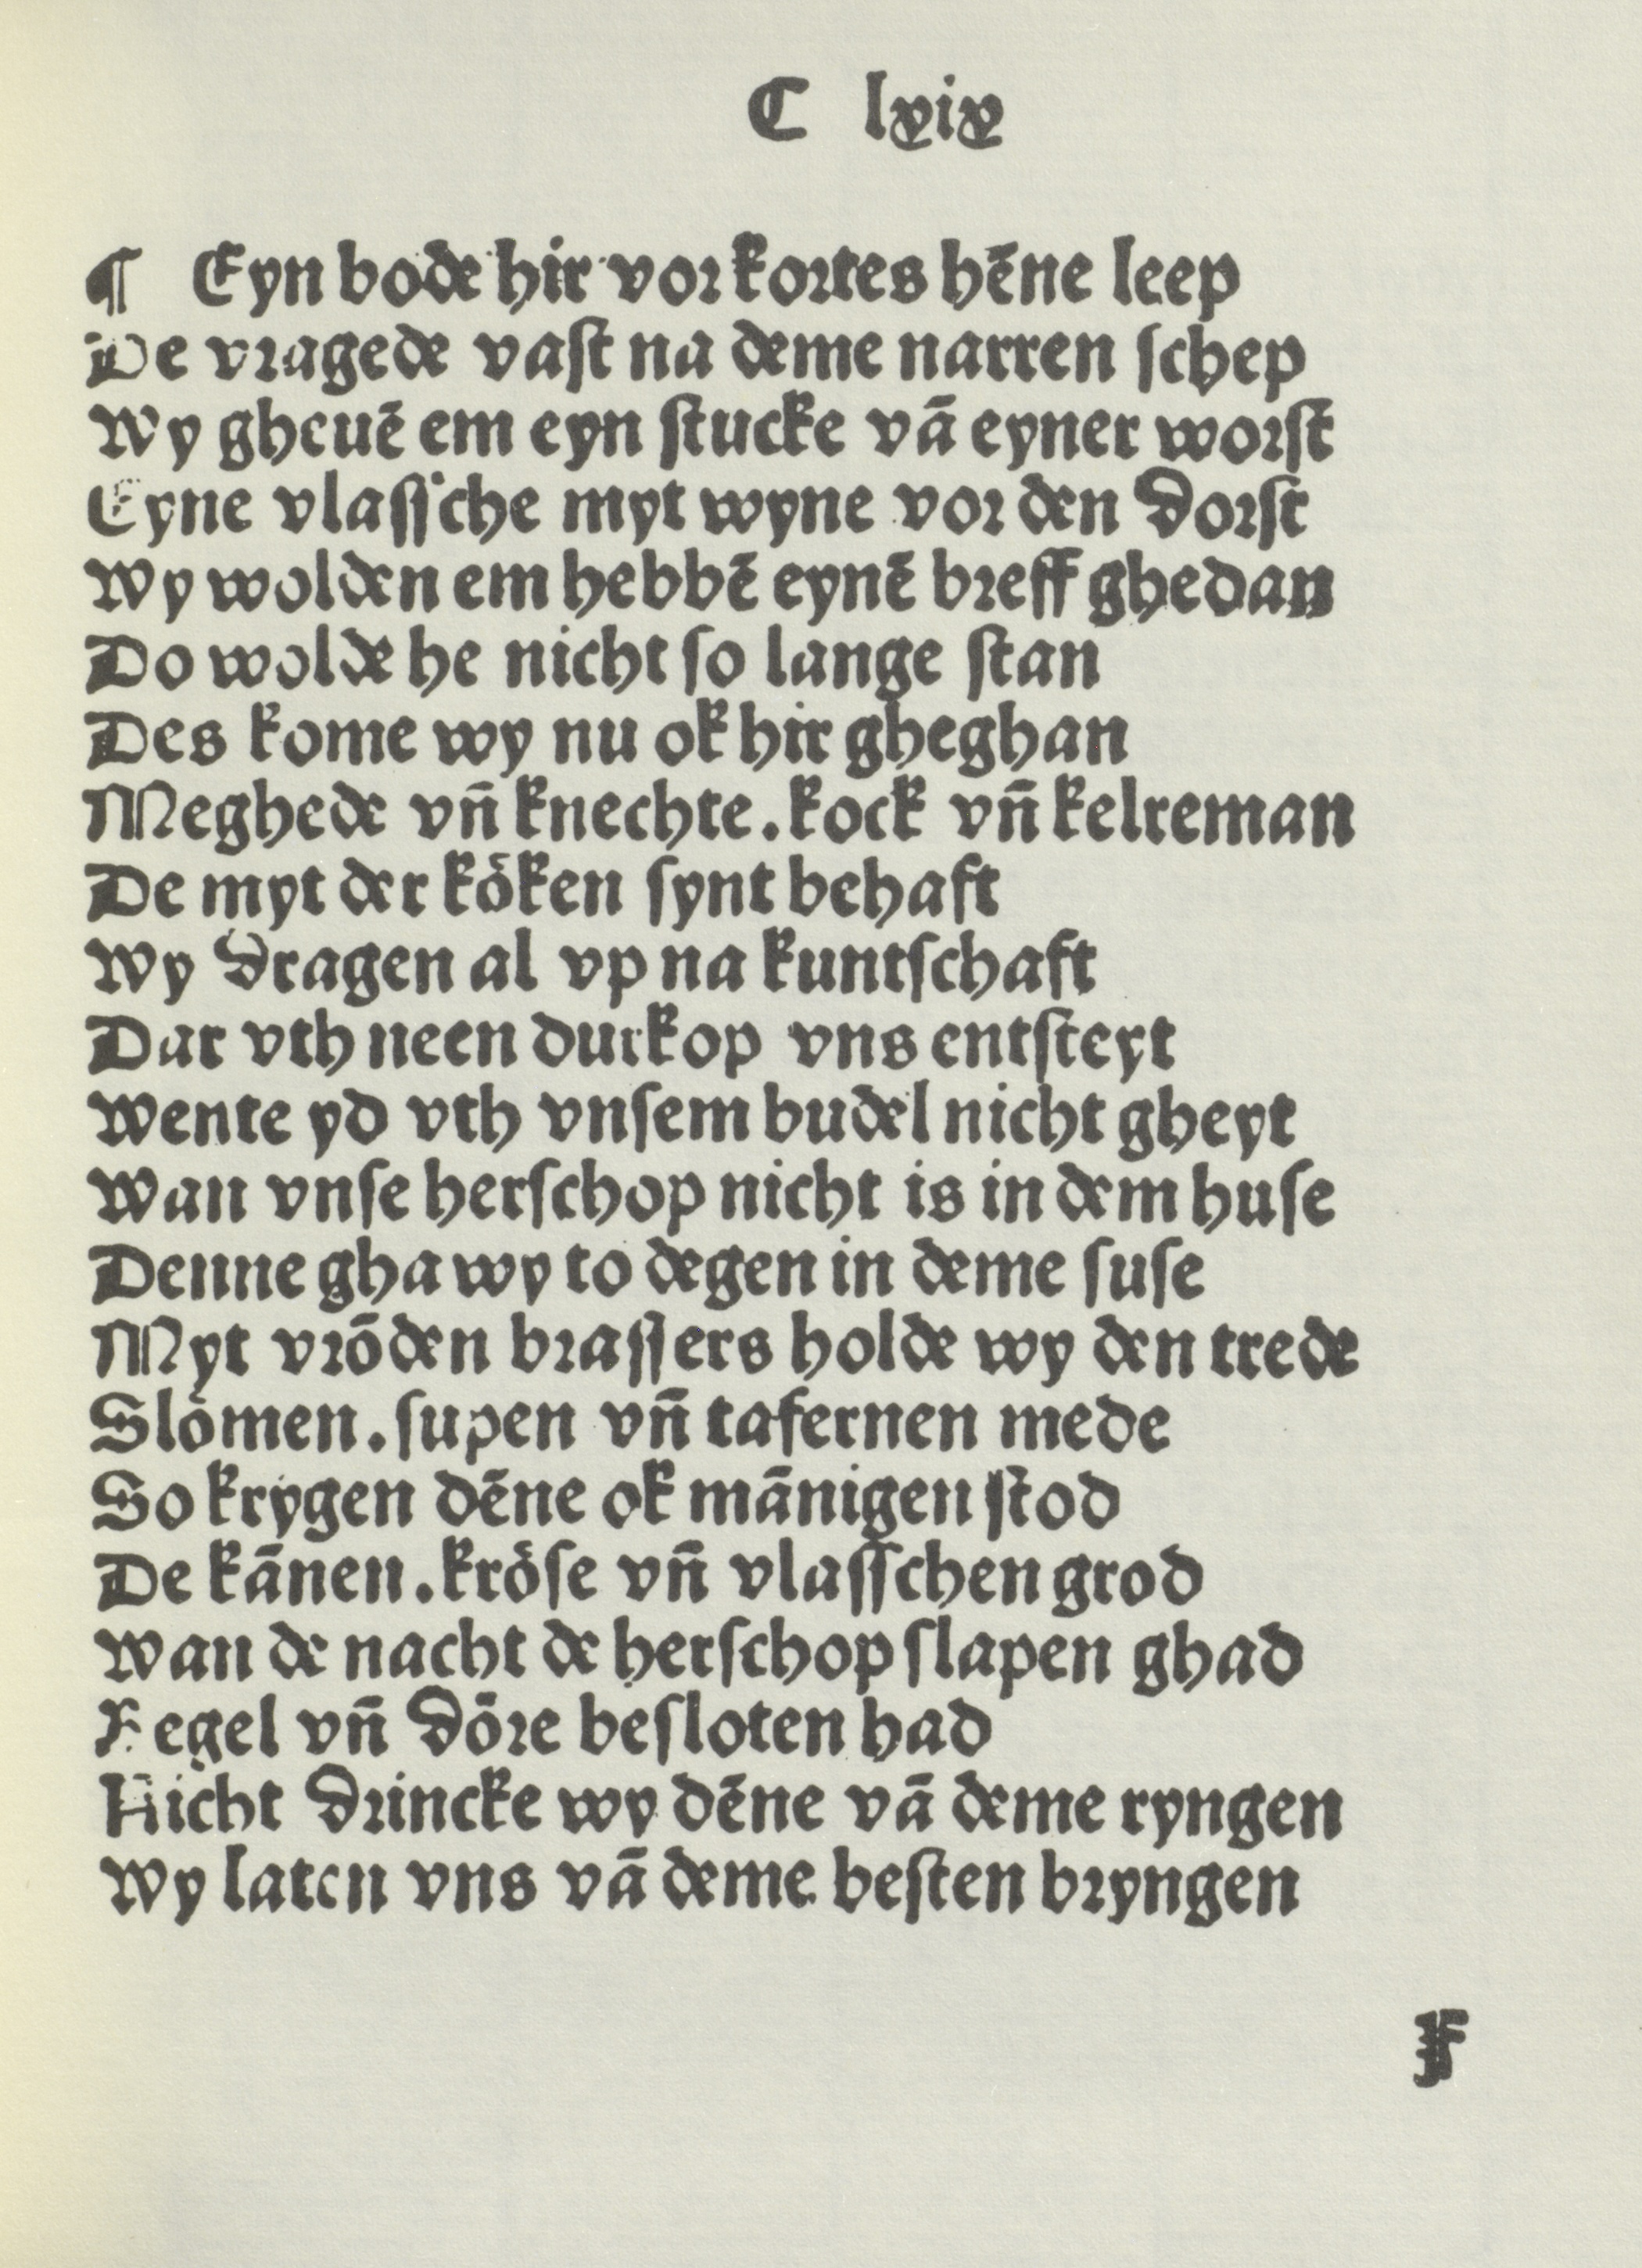 C lxix
¶ Eyn bode hir vor kortes hēne leep
De vragede vast na deme narren schep
Wy gheuē em eyn stucke vā eyner worst
Eyne vlassche myt wyne vor den dorst
Wy wolden em hebbē eynē breff ghedan
Do wolde he nicht so lange stan
Des kome wy nu ok hir gheghan
Meghede vn̄ knechte. kock vn̄ kelreman
De myt der koͤken synt behaft
Wy dragen al vp na kuntschaft
Dar vth neen durkop vns entsteyt
Wente yd vth vnsem budel nicht gheyt
Wan vnse herschop nicht is in dem huse
Denne gha wy to degen in deme suse
Myt vrōden brassers holde wy den trede
Sloͤmen. supen vn̄ tafernen mede
So krygen dēne ok mānigen stod
De kānen. kroͤse vn̄ vlasschen grod
Wan de nacht de herschop slapen ghad
Regel vn̄ doͤre besloten had
Nicht drincke wy dēne vā deme ryngen
Wy laten vns vā deme besten bryngen
F